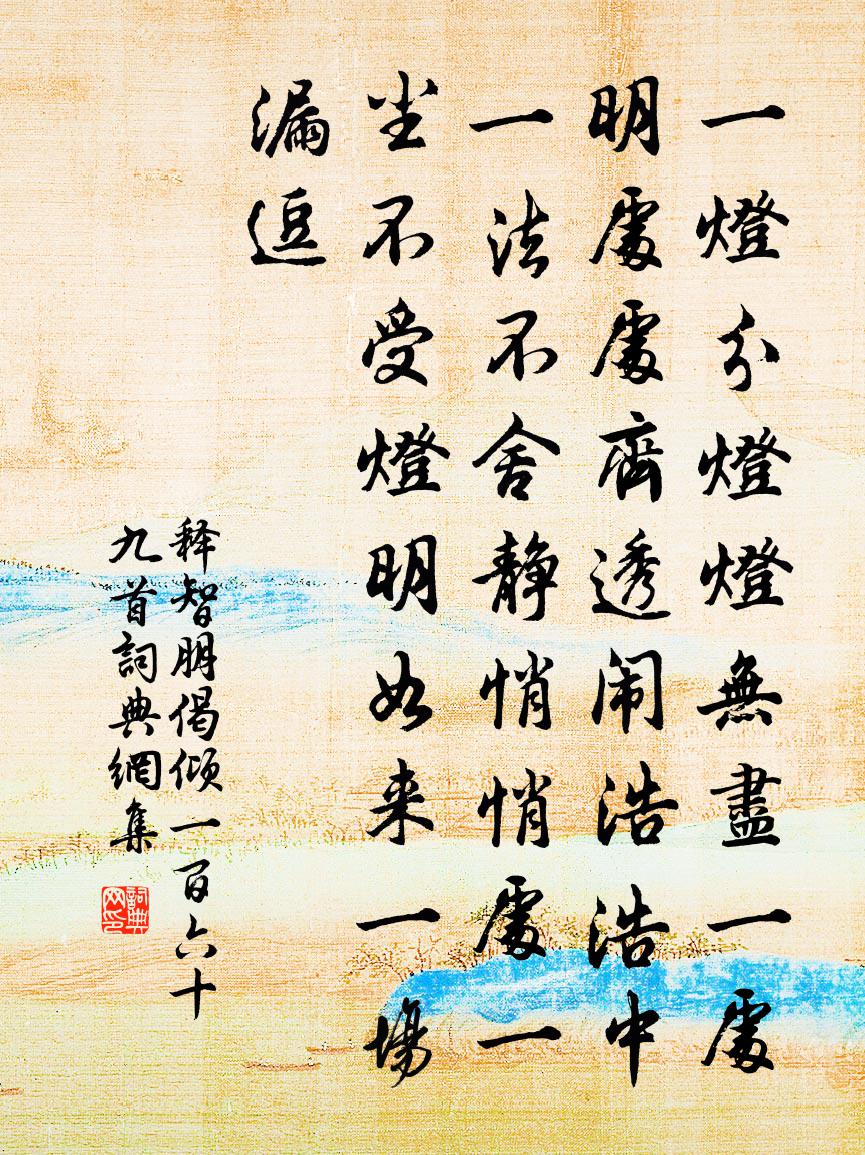 一燈分燈燈無盡一處
明處處齊透闹浩浩中
一法不舍静悄悄處一
尘不受燈明如来一場
漏逗
释智朋偈倾一百六十
九首詞典網集
詞典网印